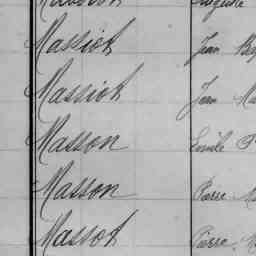 Auguste
Massiot Jean
Massiot Jean
Masson Émile
Masson Pierre
Massot Pierre